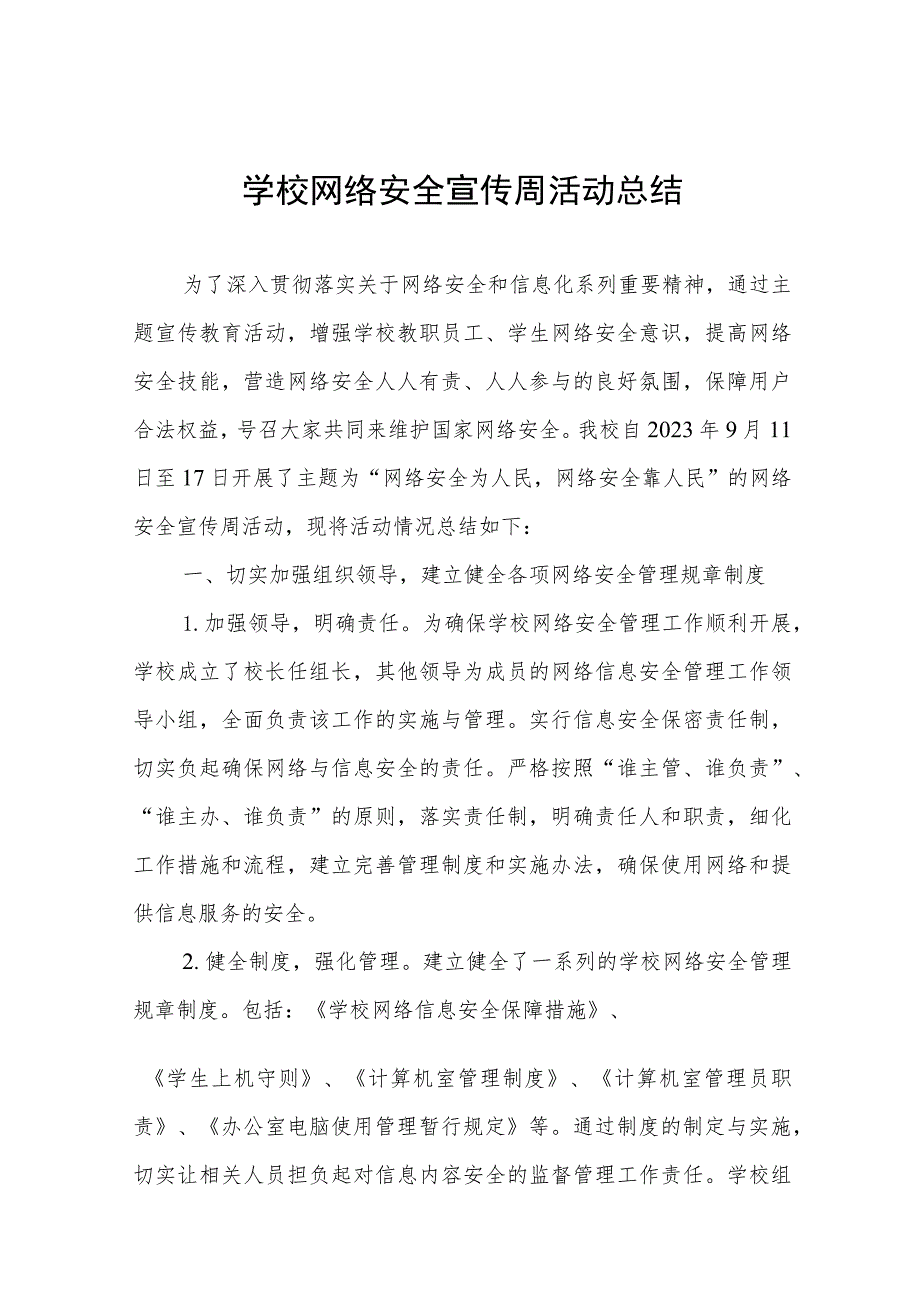 学校网络安全宣传周活动总结
为了深入贯彻落实关于网络安全和信息化系列重要精神，通过主
题宣传教育活动，增强学校教职员工、学生网络安全意识，提高网络
安全技能，营造网络安全人人有责、人人参与的良好氛围，保障用户
合法权益，号召大家共同来维护国家网络安全。我校自 2023 年 9 月 11
日至 17 日开展了主题为“网络安全为人民，网络安全靠人民”的网络
安全宣传周活动，现将活动情况总结如下：
一、切实加强组织领导，建立健全各项网络安全管理规章制度
1. 加强领导，明确责任。为确保学校网络安全管理工作顺利开展，
学校成立了校长任组长，其他领导为成员的网络信息安全管理工作领
导小组，全面负责该工作的实施与管理。实行信息安全保密责任制，
切实负起确保网络与信息安全的责任。严格按照“谁主管、谁负责”、
“谁主办、谁负责”的原则，落实责任制，明确责任人和职责，细化
工作措施和流程，建立完善管理制度和实施办法，确保使用网络和提
供信息服务的安全。
2. 健全制度，强化管理。建立健全了一系列的学校网络安全管理
规章制度。包括：《学校网络信息安全保障措施》、
《学生上机守则》、《计算机室管理制度》、《计算机室管理员职
责》、《办公室电脑使用管理暂行规定》等。通过制度的制定与实施，
切实让相关人员担负起对信息内容安全的监督管理工作责任。学校组